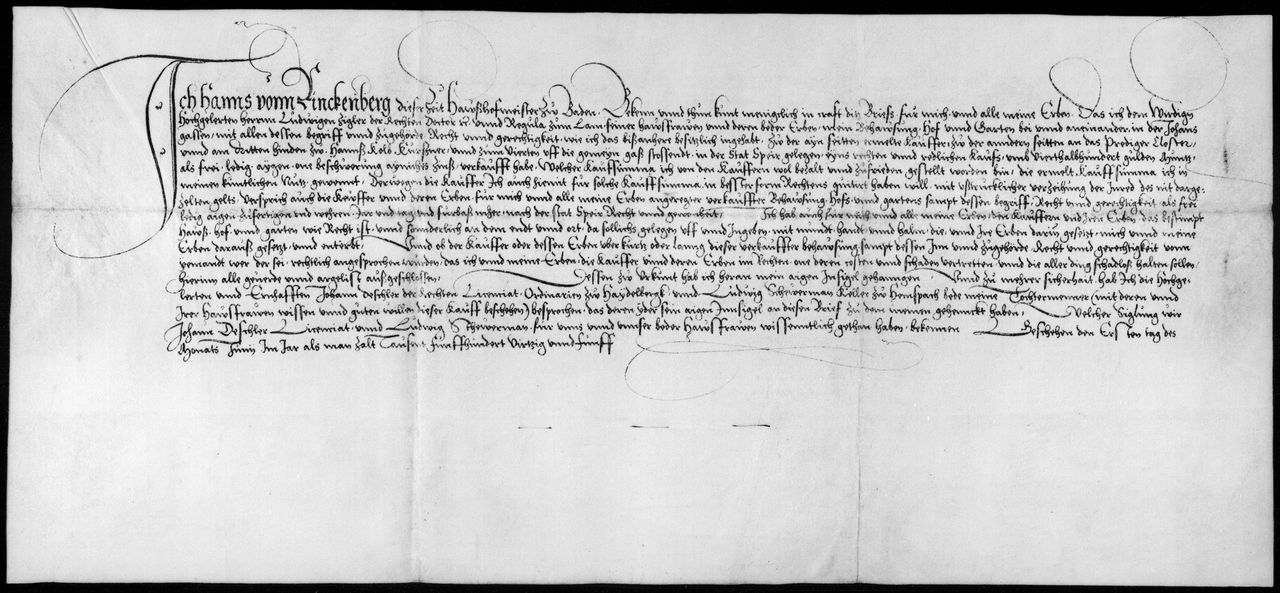 Ich Hanns vonn Linckenberg dieser Zeit Haußhofmeister zů Baden. Bekenn vnnd thun kunt meniglich in craft diß Briefs für mich vnd alle meine Erben. Das ich dem Wirdign
Hochgelerten herrnn Ludwigen Zigler der Rechten Doctor vnnd Regula zum Lam seiner haussfrawen vnnd deren beder Erben, mein Behawsung, Hof vnnd Garten bei vnnd aneinander, in der Johans
gassen, mit allen dessen begriff vnnd zugehörde Recht vnnd gerechtigkeit, wie ich das bißanhere besitzlich ingehabt. Zů der ayn seitten, ermelte Kauffer, zů der andern seitten an das Prediger Closter,
vnnd am dritten hinden zů, Hannß Kolb, Kürßner, vnnd zum Vierten vff die gemeyn gaß stossendt, in der Stat Speir gelegen, eyns rechten vnnd redlichen Kauffs, vmb Vierthalbhundert gulden Müntz,
als frei, ledig, aygen, one beschwerung ayniches Zinß, verkaufft habe. Welcher Kauffsumma ich von den Kauffern wol bezalt vnnd zufrieden gestellt worden bin, die ermelt Kauffsumma ich in
meinen kuntlichen Nutz gewennt. Derwegen die Kauffer Ich auch hiemit für solche Kauffsumma, in bester form Rechtens quittirt haben will, mit vßtrucklicher verzeihung der Inred des nit darge-
zelten gelts. Versprich auch die Keuffer vnnd deren Erben für mich vnnd alle meine Erben angeregter verkauffter Behawsung, Hofs vnnd gartens sampt dessen begriff, Recht vnnd gerechtigkeit als frei
ledig aigen zufertigen vnd wehren Jar vnd tag vnd fürbaß mher, nach der stat Speir Recht vnnd gewonheit. Ich hab auch für mich vnnd alle meine Erben, den Kauffern vnd Iren Erben das bestimpt
Hauß, hof vnnd garten wie Recht ist, vnnd sonderlich an dem endt vnnd ort, da sollichs gelegen vff vnnd Ingeben, mit mundt handt vnnd halm, die vnnd Ire Erben darin gesetzt, mich vnnd meine
Erben darauß gesetzt vnnd enterbt. Vnnd ob der Kauffer oder dessen Erben vber kurtz oder lanng dieser verkauffter behawsung, sampt dessen Inn vnnd zugehörde, Recht vnnd gerechtigkeit vonn
yemandt wer der sei, rechtlich angesprochen würden, das ich vnnd meine Erben, die Kauffer vnnd deren Erben im rechten, one deren costen vnnd schaden vertretten, vnnd die aller ding schadloß halten sollen,
hierinn alle geuerde vnnd argelist außgeschlossen. Dessen zů Vrkunt hab ich heran mein aigen Insigel gehanngen. Vnnd zu mehrer sicherheit, hab Ich die Hochge-
lerten vnnd Ernhafften Johann Deschler der Rechten Licentiat, Ordinarien zů Haydelbergk, vnnd Ludwig Scheuerman Keller zů Hemspach bede meine Tochtermenner (mit deren vnnd
Irer Haussfrawen wissen vnnd guten willen dieser Kauff beschehen) besprochen, das deren yder sein aigen Innsigel an diesen Brief zů dem meinen gehennckt haben, Welcher Siglung wir
Johann Deschler Licentiat, vnnd Ludwig Schewerman, für vnns vnnd vnser beder Haussfrawen wissentlich gethan haben, bekennen. Geschehen den Ersten tag des
Monats Junij Im Jar als man zalt Tausent Fünffhundert Virtzig vnnd fünff